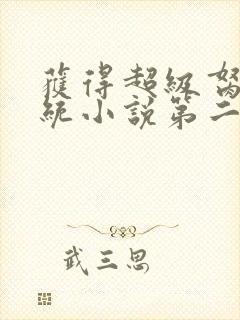 獲得超級
統小說第二
武三思